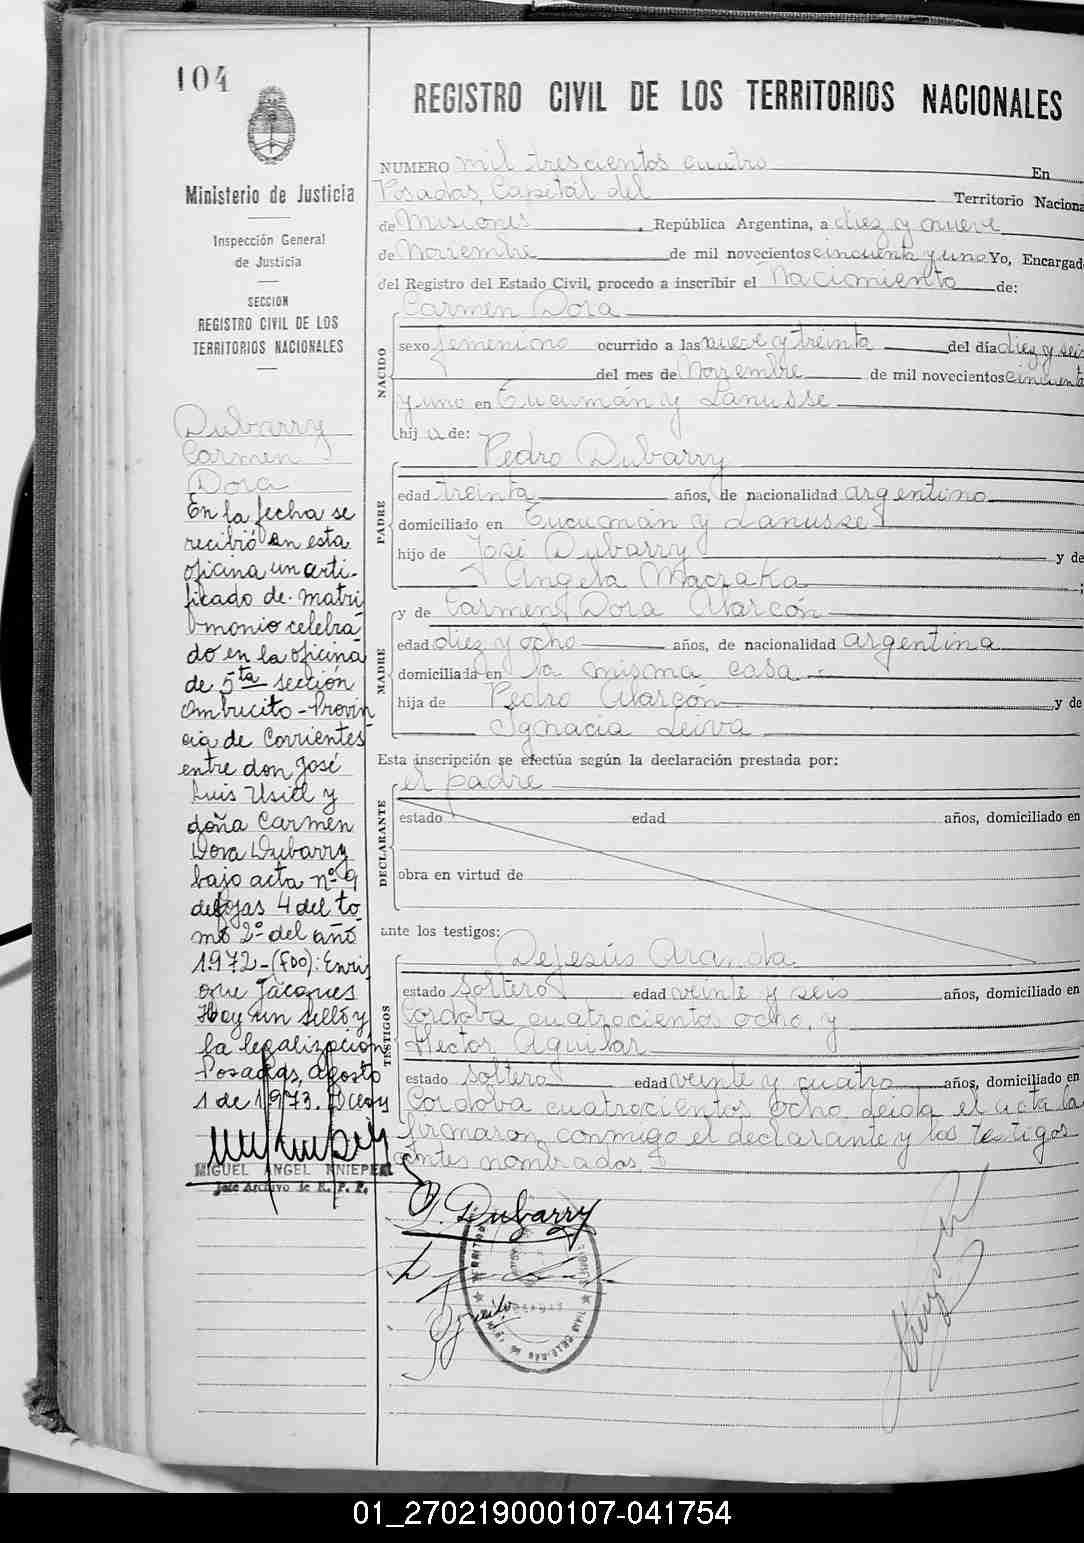 104
Ministerio de Justicia
Inspección General
de Justicia
SECCION
REGISTRO CIVIL DE LOS
TERRITORIOS NACIONALES
Dubarry
Carmen
Dora
En la fecha se
recibió en esta
oficina un arti-
ficado de matri
monio celebra
do en la oficina
de 5ta sección
Ambucito - Provin
cia de Corrientes
entre don José
Luis Usid y
doña Carmen
Dora Dubarry
bajo acta nº 9
de fojas 4 del to
mo 2º del año
1.972 - (FDO): Enri
que Jacques
Hay un sello y
la legalización
Posadas, agosto
1 de 1973.
MIGUEL ANGEL KNIEPER
Jefe Archivo de R. P. P.
REGISTRO CIVIL DE LOS TERRITORIOS NACIONALES
NUMERO mil trescientos cuatro En
Posadas, Capital del Territorio Naciona
de Misiones, República Argentina, a diez y nueve
de Noviembre de mil novecientos cincuenta y uno Yo, Encargad
del Registro del Estado Civil, procedo a inscribir el Nacimiento de:
NACIDO
Carmen Dora
sexo femenino ocurrido a las nueve y treinta del día diez y seis
del mes de Noviembre de mil novecientos cincuenta
y uno en Tucumán y Lanusse
hija de:
PADRE
Pedro Dubarry
edad treinta años, de nacionalidad argentino
domiciliado en Tucumán y Lanusse
hijo de José Dubarry y de
Angela Maczaka;
MADRE
y de Carmen Dora Alarcón
edad diez y ocho años, de nacionalidad argentina
domiciliada en la misma casa
hija de Pedro Alarcón y de
Ignacia Leiva
Esta inscripción se efectúa según la declaración prestada por:
DECLARANTE
el padre
estado edad años, domiciliado en
obra en virtud de
ante los testigos:
TESTIGOS
Dejesús Aranda
estado soltero edad veinte y seis años, domiciliado en
Córdoba cuatrocientos ocho, y
Hector Aguilar
estado soltero edad veinte y cuatro años, domiciliado en
Córdoba cuatrocientos ocho, leida el acta la
firmaron conmigo el declarante y los testigos
antes nombrados.
Dubarry
01_270219000107-041754